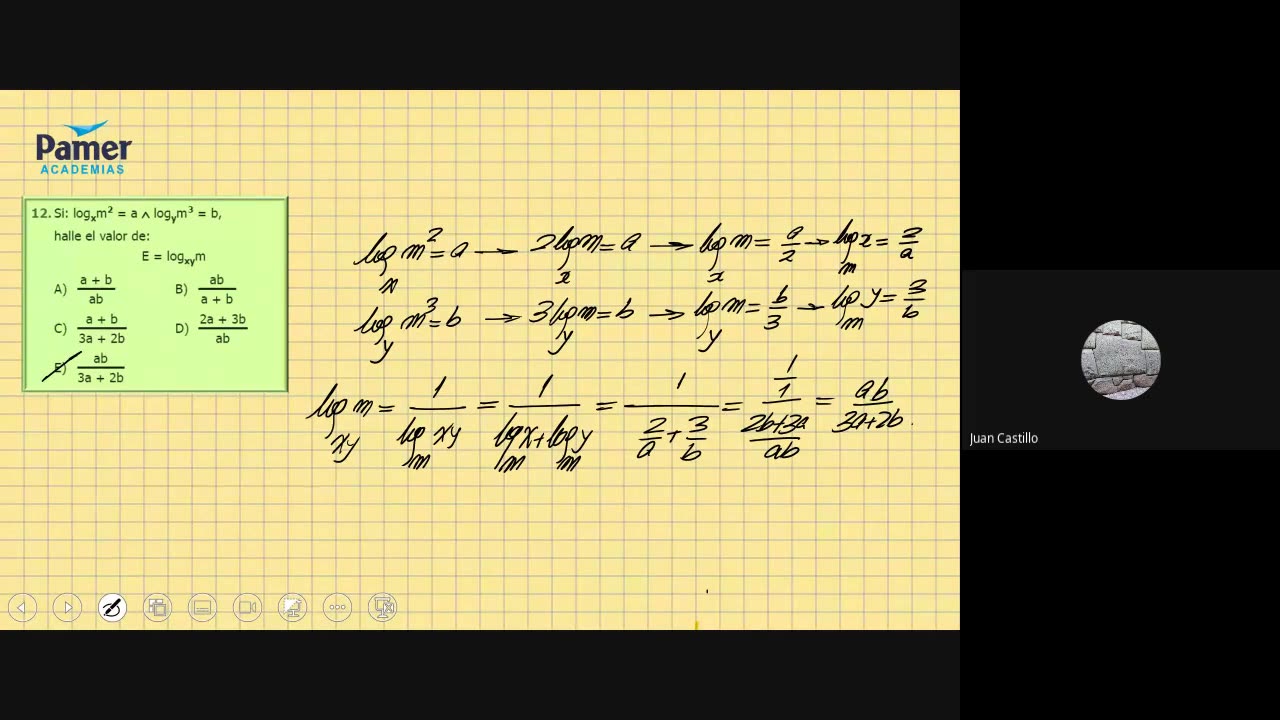 Pamer
ACADEMIAS
12. Si: logₓm² = a ∧ logᵧm³ = b,
halle el valor de:
E = logₓᵧm
A) (a + b)/(ab)
B) (ab)/(a + b)
C) (a + b)/(3a + 2b)
D) (2a + 3b)/(ab)
E) (ab)/(3a + 2b)
logₓ m² = a → 2logₓ m = a → logₓ m = a/2 → logₘ x = 2/a
logᵧ m³ = b → 3logᵧ m = b → logᵧ m = b/3 → logₘ y = 3/b
logₓᵧ m = 1/(logₘ xy) = 1/(logₘ x + logₘ y) = 1/(2/a + 3/b) = (1/1)/((2b+3a)/ab) = ab/(3a+2b).
Juan Castillo